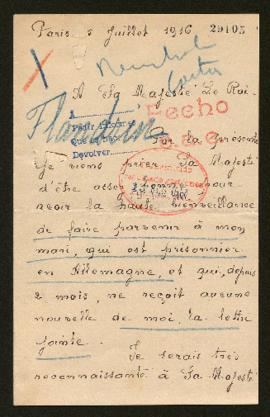 Paris 5 Juillet 1916 29103
A Sa Majesté Le Roi
Flandrin
Fecho
Par la présente
Devolver
je viens prier Sa Majesté
d'être assez bonne pour
avoir la haute bienveillance
de faire parvenir à mon
mari, qui est prisonnier
en Allemagne, et qui, depuis
2 mois, ne reçoit aucune
nouvelle de moi, la lettre
jointe.
Je serais très
reconnaissante à Sa Majesté